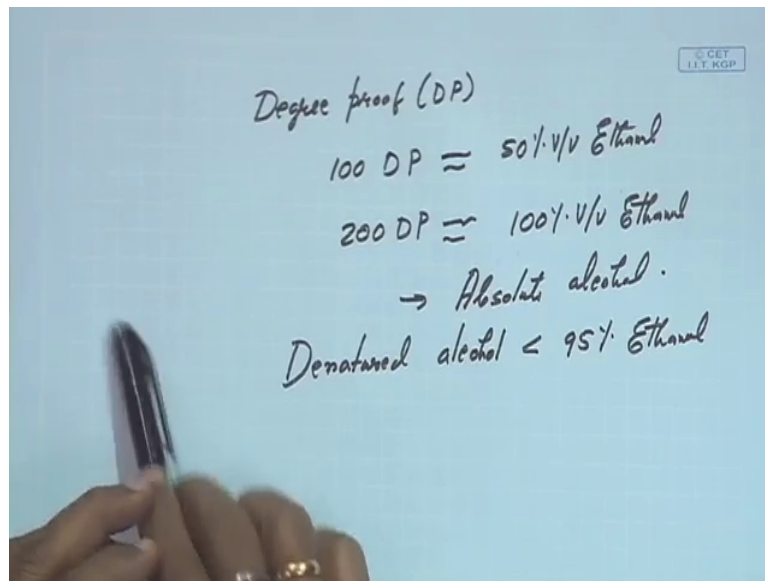 © CET
I.I.T. KGP
Degree proof (DP)
100 DP ≈ 50% v/v Ethanol
200 DP ≈ 100% v/v Ethanol
→ Absolute alcohol.
Denatured alcohol < 95% Ethanol